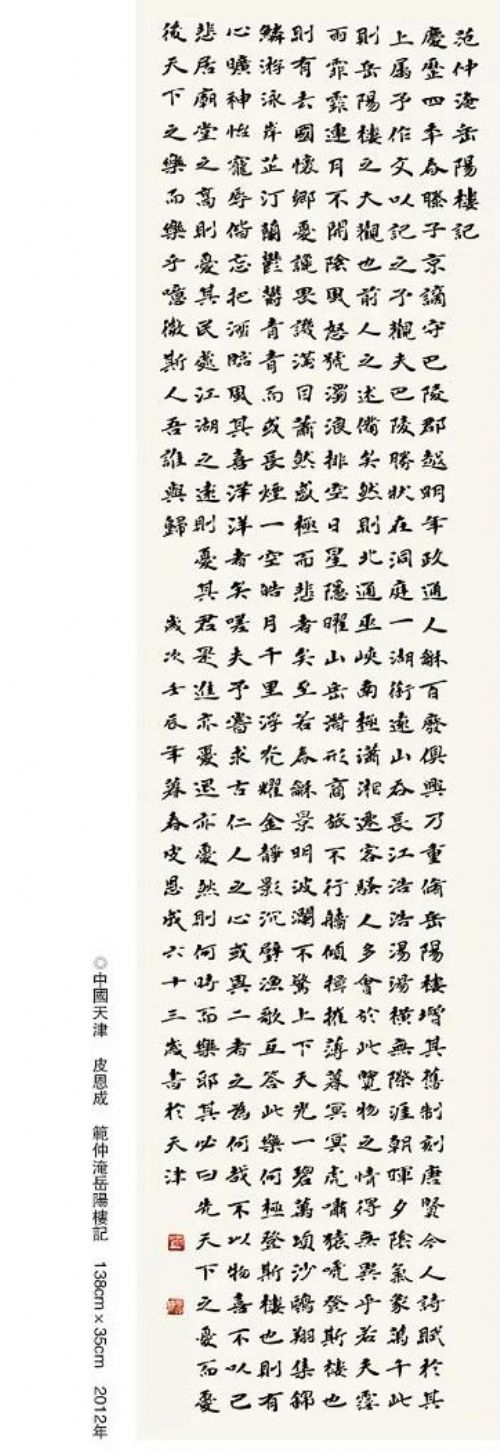 范仲淹岳陽樓記
慶歷四年春滕子京謫守巴陵郡越明年政通人龢百廢俱興乃重脩岳陽樓增其舊制刻唐賢今人詩賦於其
上屬予作文以記之予觀夫巴陵勝狀在洞庭一湖銜遠山吞長江浩浩湯湯橫無際涯朝暉夕陰氣象萬千此
則岳陽樓之大觀也前人之述備矣然則北通巫峽南極瀟湘遷客騷人多會於此覽物之情得無異乎若夫霪
雨霏霏連月不開陰風怒號濁浪排空日星隱曜山岳潛形商旅不行檣傾楫摧薄暮冥冥虎嘯猿啼登斯樓也
則有去國懷鄉憂讒畏譏滿目蕭然感極而悲者矣至若春龢景明波瀾不驚上下天光一碧萬頃沙鷗翔集錦
鱗游泳岸芷汀蘭鬱鬱青青而或長煙一空皓月千里浮光耀金靜影沉璧漁歌互答此樂何極登斯樓也則有
心曠神怡寵辱偕忘把酒臨風其喜洋洋者矣嗟夫予嘗求古仁人之心或異二者之為何哉不以物喜不以己
悲居廟堂之高則憂其民處江湖之遠則憂其君是進亦憂退亦憂然則何時而樂邪其必曰先天下之憂而憂
後天下之樂而樂乎噫微斯人吾誰與歸 歲次壬辰年暮春皮恩成六十三歲書於天津
◎中國天津 皮恩成 範仲淹岳陽樓記 138cm×35cm 2012年